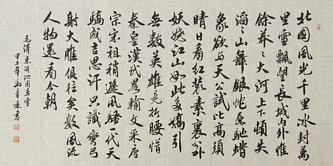 北國風光千里冰封萬
里雪飄望長城內外惟
餘莽莽大河上下頓失
滔滔山舞銀蛇原馳蠟
象欲與天公試比高須
晴日看紅裝素裹分外
妖嬈江山如此多嬌引
無數英雄競折腰惜
秦皇漢武略輸文采唐
宗宋祖稍遜風騷一代天
驕成吉思汗只識彎弓
射大雕俱往矣數風流
人物還看今朝
毛澤東沁園春雪